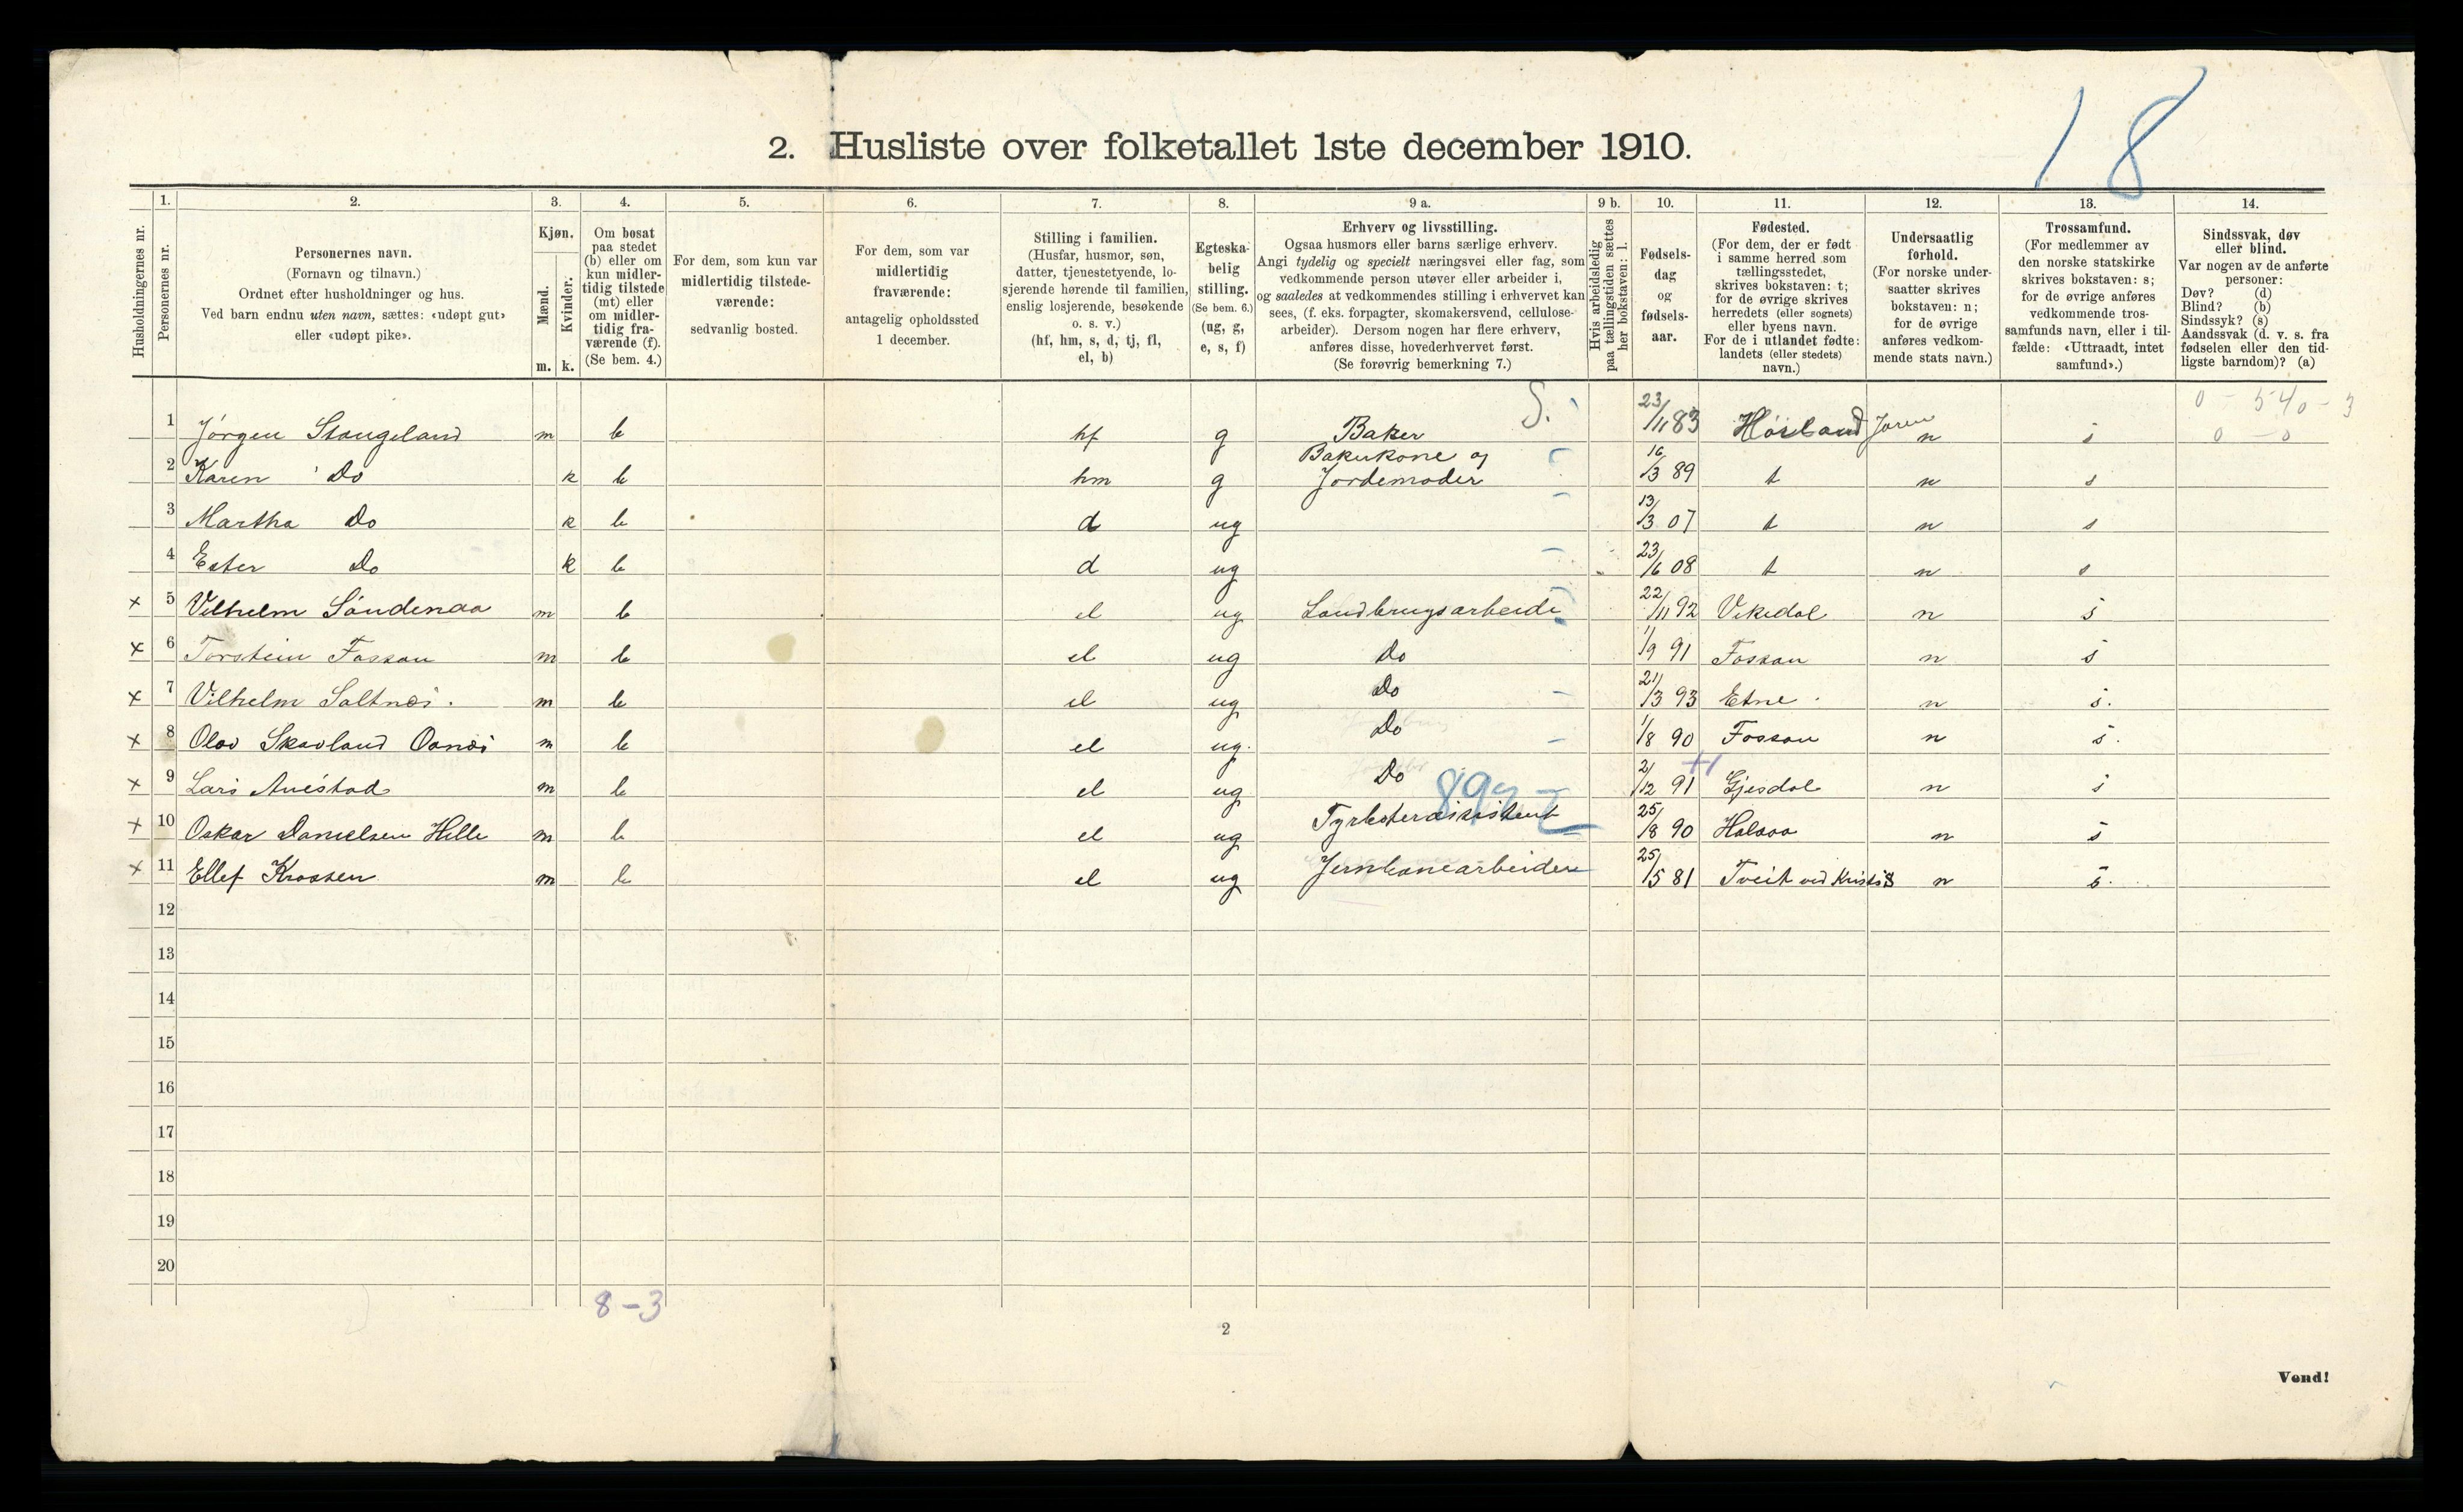 18
2. Husliste over folketallet 1ste december 1910.
Husholdningernes nr.
1.
Personernes nr.
2.
Personernes navn.
(Fornavn og tilnavn.)
Ordnet efter husholdninger og hus.
Ved barn endnu uten navn, sættes: «udøpt gut»
eller «udøpt pike».
3.
Kjøn.
Mænd.
Kvinder.
m. k.
4.
Om bosat
paa stedet
(b) eller om
kun midler-
tidig tilstede
(mt) eller
om midler-
tidig fra-
værende (f).
(Se bem. 4.)
5.
For dem, som kun var
midlertidig tilstede-
værende:
sedvanlig bosted.
6.
For dem, som var
midlertidig
fraværende:
antagelig opholdssted
1 december.
7.
Stilling i familien.
(Husfar, husmor, søn,
datter, tjenestetyende, lo-
sjerende hørende til familien,
enslig losjerende, besøkende
o. s. v.)
(hf, hm, s, d, tj, fl,
el, b)
8.
Egteska-
belig
stilling.
(Se bem. 6.)
(ug, g,
e, s, f)
9 a.
Erhverv og livsstilling.
Ogsaa husmors eller barns særlige erhverv.
Angi tydelig og specielt næringsvei eller fag, som
vedkommende person utøver eller arbeider i,
og saaledes at vedkommendes stilling i erhvervet kan
sees, (f. eks. forpagter, skomakersvend, cellulose-
arbeider). Dersom nogen har flere erhverv,
anføres disse, hovederhvervet først.
(Se forøvrig bemerkning 7.)
9 b.
Hvis arbeidsledig
paa tællingstiden sættes
her bokstaven: l.
10.
Fødsels-
dag
og
fødsels-
aar.
11.
Fødested.
(For dem, der er født
i samme herred som
tællingsstedet,
skrives bokstaven: t;
for de øvrige skrives
herredets (eller sognets)
eller byens navn.
For de i utlandet fødte:
landets (eller stedets)
navn.)
12.
Undersaatlig
forhold.
(For norske under-
saatter skrives
bokstaven: n;
for de øvrige
anføres vedkom-
mende stats navn.)
13.
Trossamfund.
(For medlemmer av
den norske statskirke
skrives bokstaven: s;
for de øvrige anføres
vedkommende tros-
samfunds navn, eller i til-
fælde: «Uttraadt, intet
samfund».)
14.
Sindssvak, døv
eller blind.
Var nogen av de anførte
personer:
Døv? (d)
Blind? (b)
Sindssyk? (s)
Aandssvak (d. v. s. fra
fødselen eller den tid-
ligste barndom)? (a)
1 Jørgen Stangeland m b hf g Baker 23/11 83 n s
2 Karen Do k b hm g Bakerkone og Jordemoder 16/3 89 t n s
3 Martha Do k b d ug 13/3 07 t n s
4 Ester Do k b d ug 23/6 08 t n s
× 5 Vilhelm Söndenaa m b el ug Landbrugsarbeide 22/11 92 Vikedal n s
× 6 Torstein Fossan m b el ug Do 1/9 91 Fossan n s
× 7 Vilhelm Saltnes. m b el ug Do 21/3 93 Etne n s.
× 8 Olav Skavland Oanes m b el ug. Do 1/8 90 Fossan n s.
× 9 Lars Auestad m b el ug Do 2/12 91 Gjesdal n s
× 10 Oskar Danielsen Hille m b el ug 25/8 90 Halsaa n s
× 11 Ellef Krossen m b el ug Jernbanearbeider 25/5 81 Tveit ved n s.
12
13
14
15
16
17
18
19
20
8-3
2
Vend!